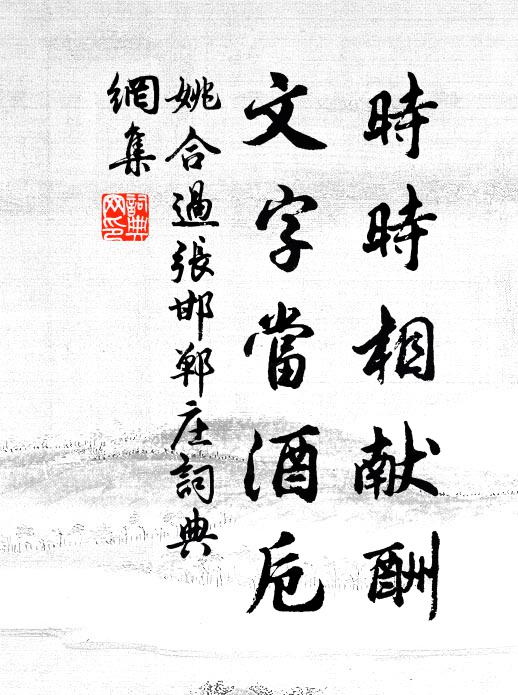 時時相献酬
文字當酒卮
姚合過張邯鄲庄詞典
網集
詞典
网印